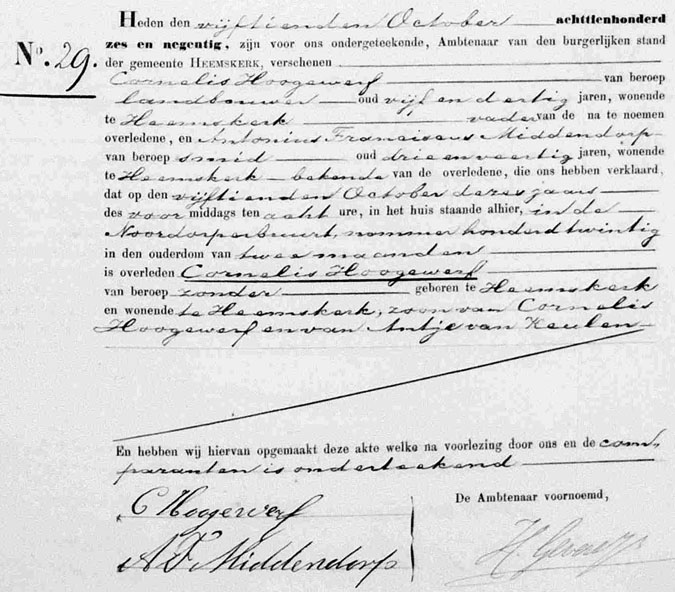 Heden den vijftienden October achttienhonderd
No. 29. zes en negentig, zijn voor ons ondergeteekende, Ambtenaar van den burgerlijken stand
der gemeente HEEMSKERK, verschenen
Cornelis Hoogewerf van beroep
landbouwer oud vijf en dertig jaren, wonende
te Heemskerk vader van de na te noemen
overledene, en Antonius Franciscus Middendorp
van beroep smid oud drieenveertig jaren, wonende
te Heemskerk bekende van de overledene, die ons hebben verklaard,
dat op den vijftienden October dezes jaars
des voor middags ten acht ure, in het huis staande alhier, in de
Noordorperbuurt, nommer honderd twintig
in den ouderdom van twee maanden
is overleden Cornelis Hoogewerf
van beroep zonder geboren te Heemskerk
en wonende te Heemskerk, zoon van Cornelis
Hoogewerf en van Antje van Keulen
En hebben wij hiervan opgemaakt deze akte welke na voorlezing door ons en de com-
paranten is onderteekend
De Ambtenaar voornoemd,
C Hoogewerf
A F Middendorp
H.